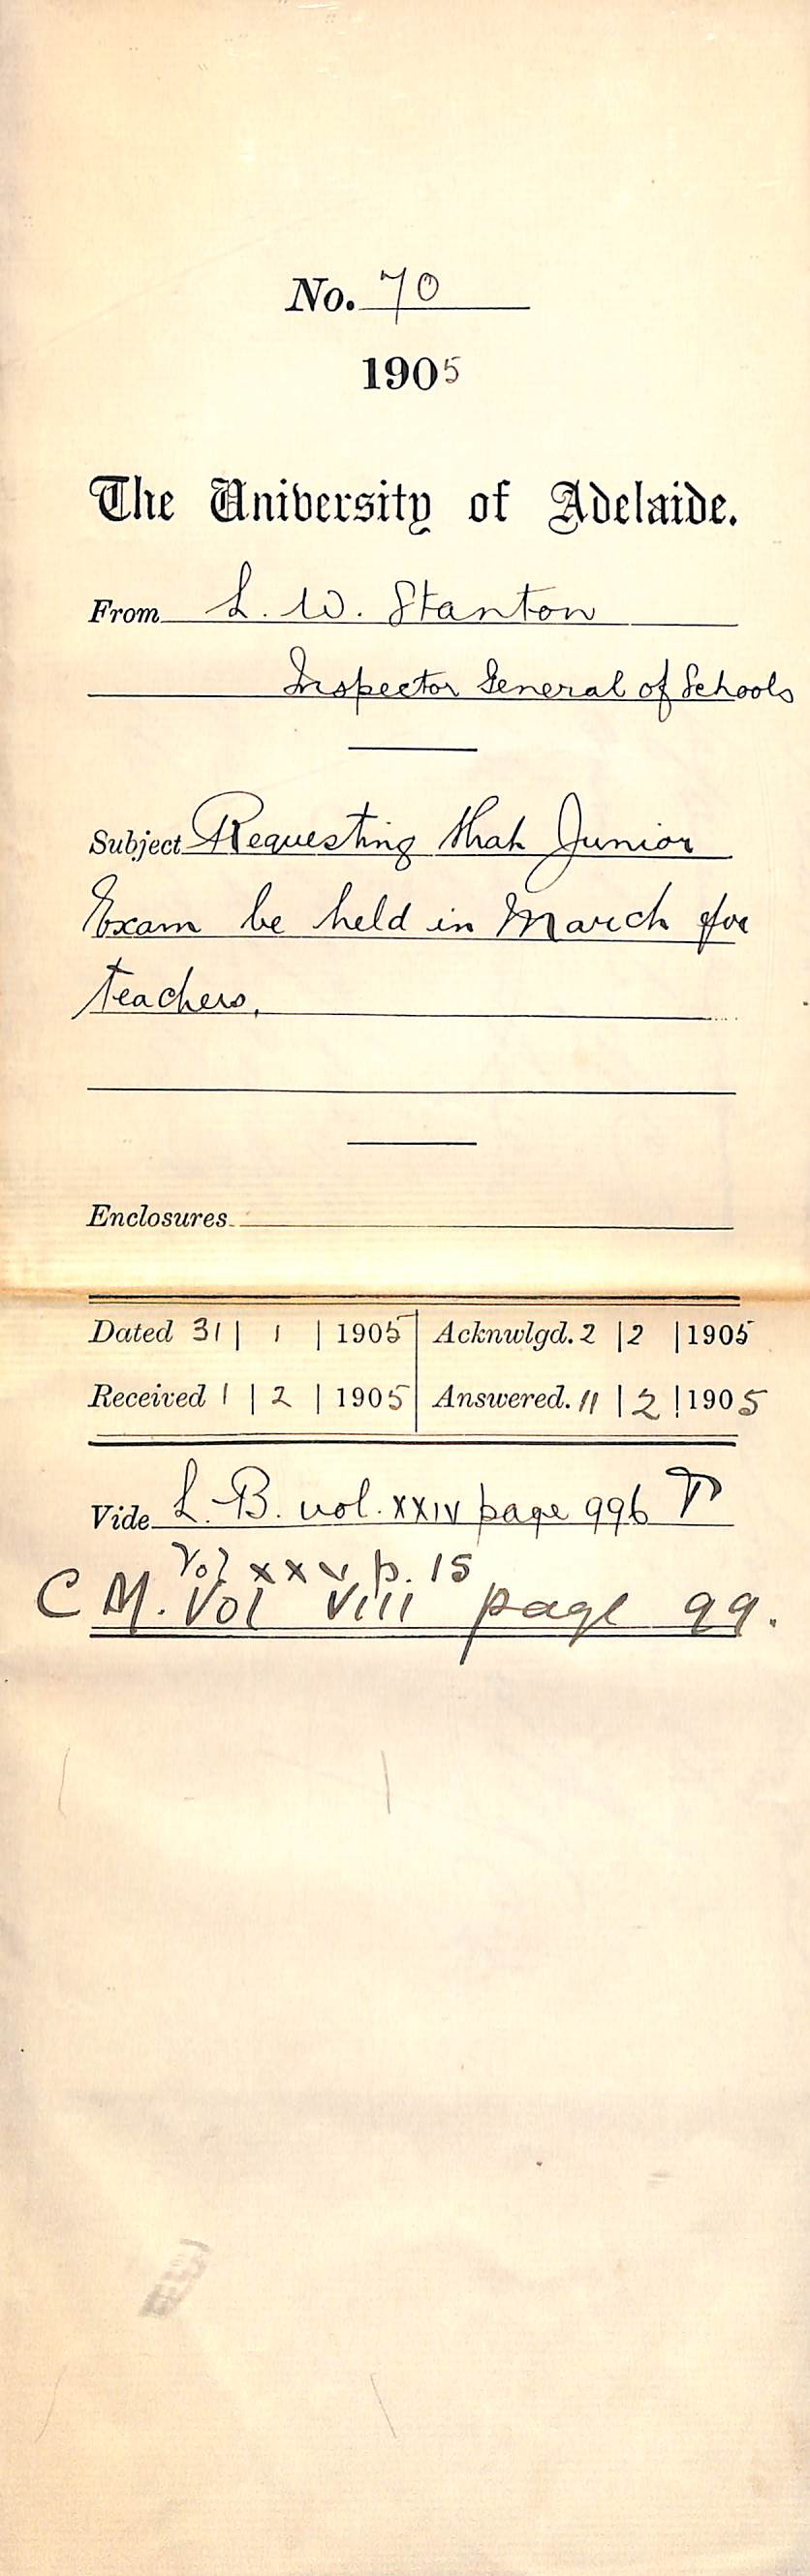 No. 70
1905
The University of Adelaide.
From L. W. Stanton
Inspector General of Schools
Subject Requesting that Junior
Exam be held in March for
teachers.
Enclosures
Dated 31 | 1 | 1905 Acknwlgd. 2 | 2 | 1905
Received 1 | 2 | 1905 Answered. 11 | 2 | 1905
Vide L. B. vol. XXIV page 996
Vol XXV p. 15
C M. Vol VIII page 99.